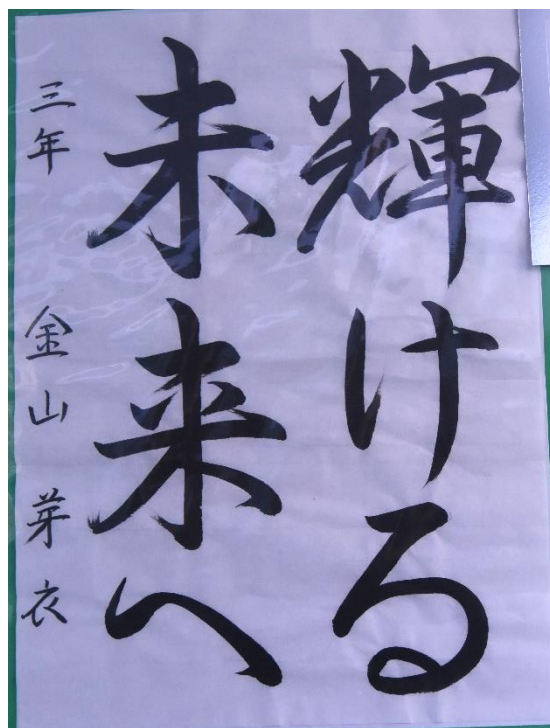 輝ける
未来へ
三年 金山 芽衣